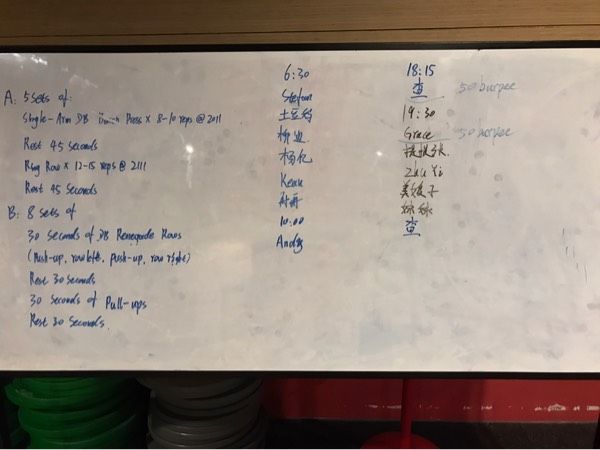 A: 5 Sets of:
Single-Arm DB Press x 8-10 reps @ 2011
Rest 45 Seconds
Ring Row x 12-15 reps @ 2111
Rest 45 Seconds
B: 8 Sets of
30 Seconds of DB Renegade Rows
(Push-up, row left, push-up, row right)
Rest 30 Seconds
30 Seconds of Pull-ups
Rest 30 Seconds.
6:30
Stefan
土豆
柳
杨
10:00
Andy
18:15
查 50 burpee
19:30
Grace 50 burpee
Zhu Yi
查